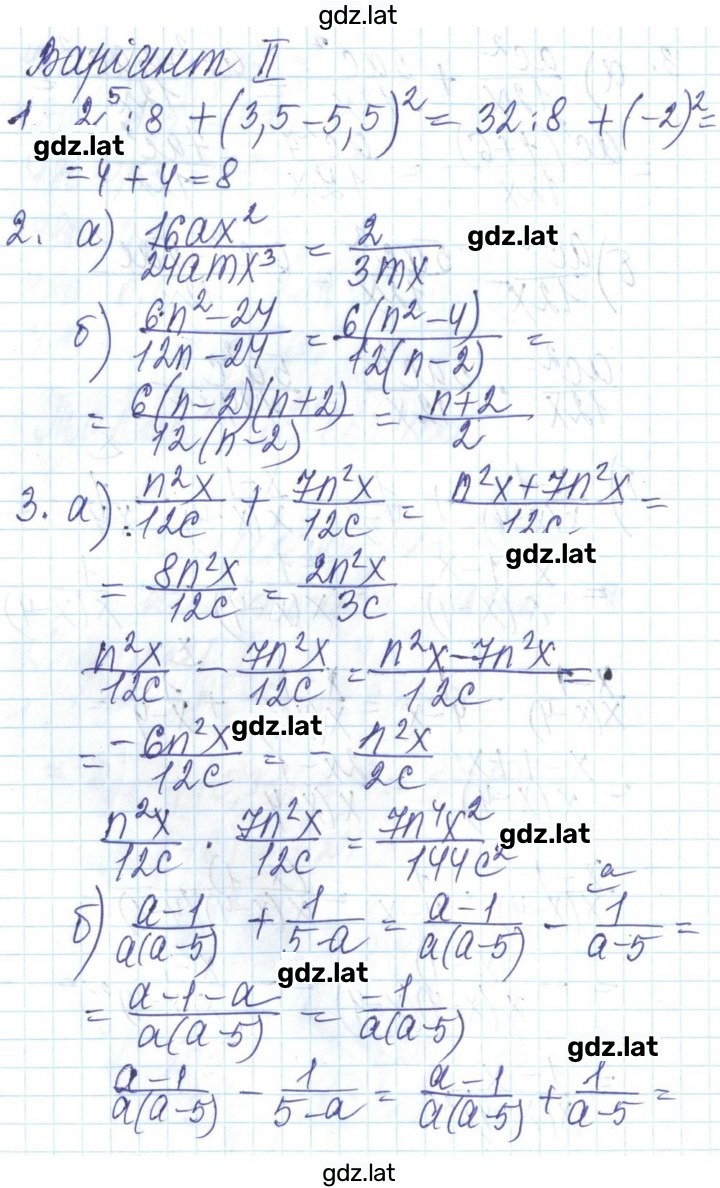 gdz.lat
Варіант II
1. 2⁵:8 + (3,5-5,5)² = 32:8 + (-2)² =
gdz.lat
= 4 + 4 = 8
2. а) 16ax²/24amx³ = 2/3mx gdz.lat
б) 6n²-24/12n-24 = 6(n²-4)/12(n-2) =
= 6(n-2)(n+2)/12(n-2) = n+2/2
3. а) n²x/12c + 7n²x/12c = n²x+7n²x/12c =
gdz.lat
= 8n²x/12c = 2n²x/3c
n²x/12c - 7n²x/12c = n²x-7n²x/12c =
gdz.lat
= -6n²x/12c = - n²x/2c
n²x/12c · 7n²x/12c = 7n⁴x²/144c² gdz.lat
б) a-1/a(a-5) + 1/5-a = a-1/a(a-5) - a 1/a-5 =
gdz.lat
= a-1-a/a(a-5) = -1/a(a-5)
gdz.lat
a-1/a(a-5) - 1/5-a = a-1/a(a-5) + 1/a-5 =
gdz.lat